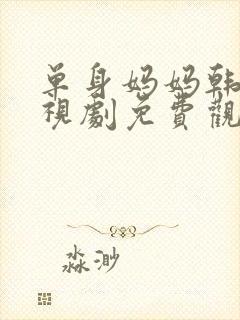 单身妈妈韩
視劇免費觀
淼渺